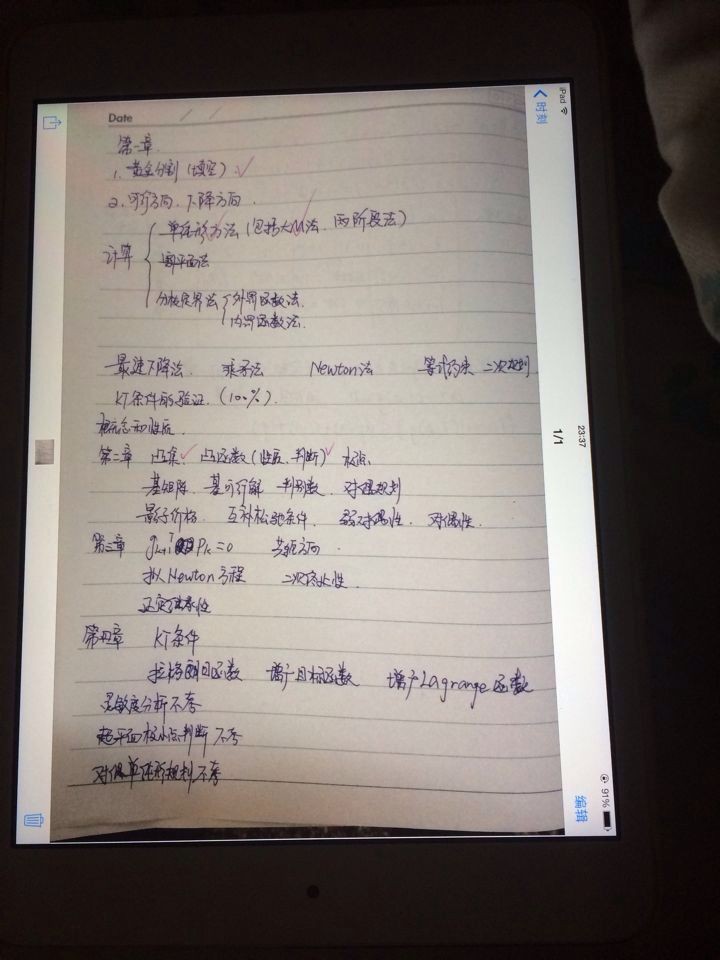 iPad
23:37
91%
时刻
1/1
编辑
Date
第一章.
1. 黄金分割 (填空). ✓
2. 可行方向. 下降方向.
计算
单纯形方法 (包括大M法. 两阶段法)
割平面法
分枝定界法
外界函数法.
内界函数法.
最速下降法. 乘子法 Newton法 等式约束 二次规划.
KT条件的验证. (100%).
概念和性质.
第二章 凸集. ✓ 凸函数 (性质. 判断) ✓ 极点
基矩阵. 基可行解 判别数. 对偶规划
影子价格. 互补松弛条件. 弱对偶性. 对偶性.
第三章 gₖ₊₁ᵀ Pₖ = 0 共轭方向.
拟Newton方程 二次终止性.
正定继承性
第四章 KT条件
拉格朗日函数 增广目标函数 增广Lagrange函数
灵敏度分析不考
超平面极小点判断 不考
对偶单纯形规划 不考